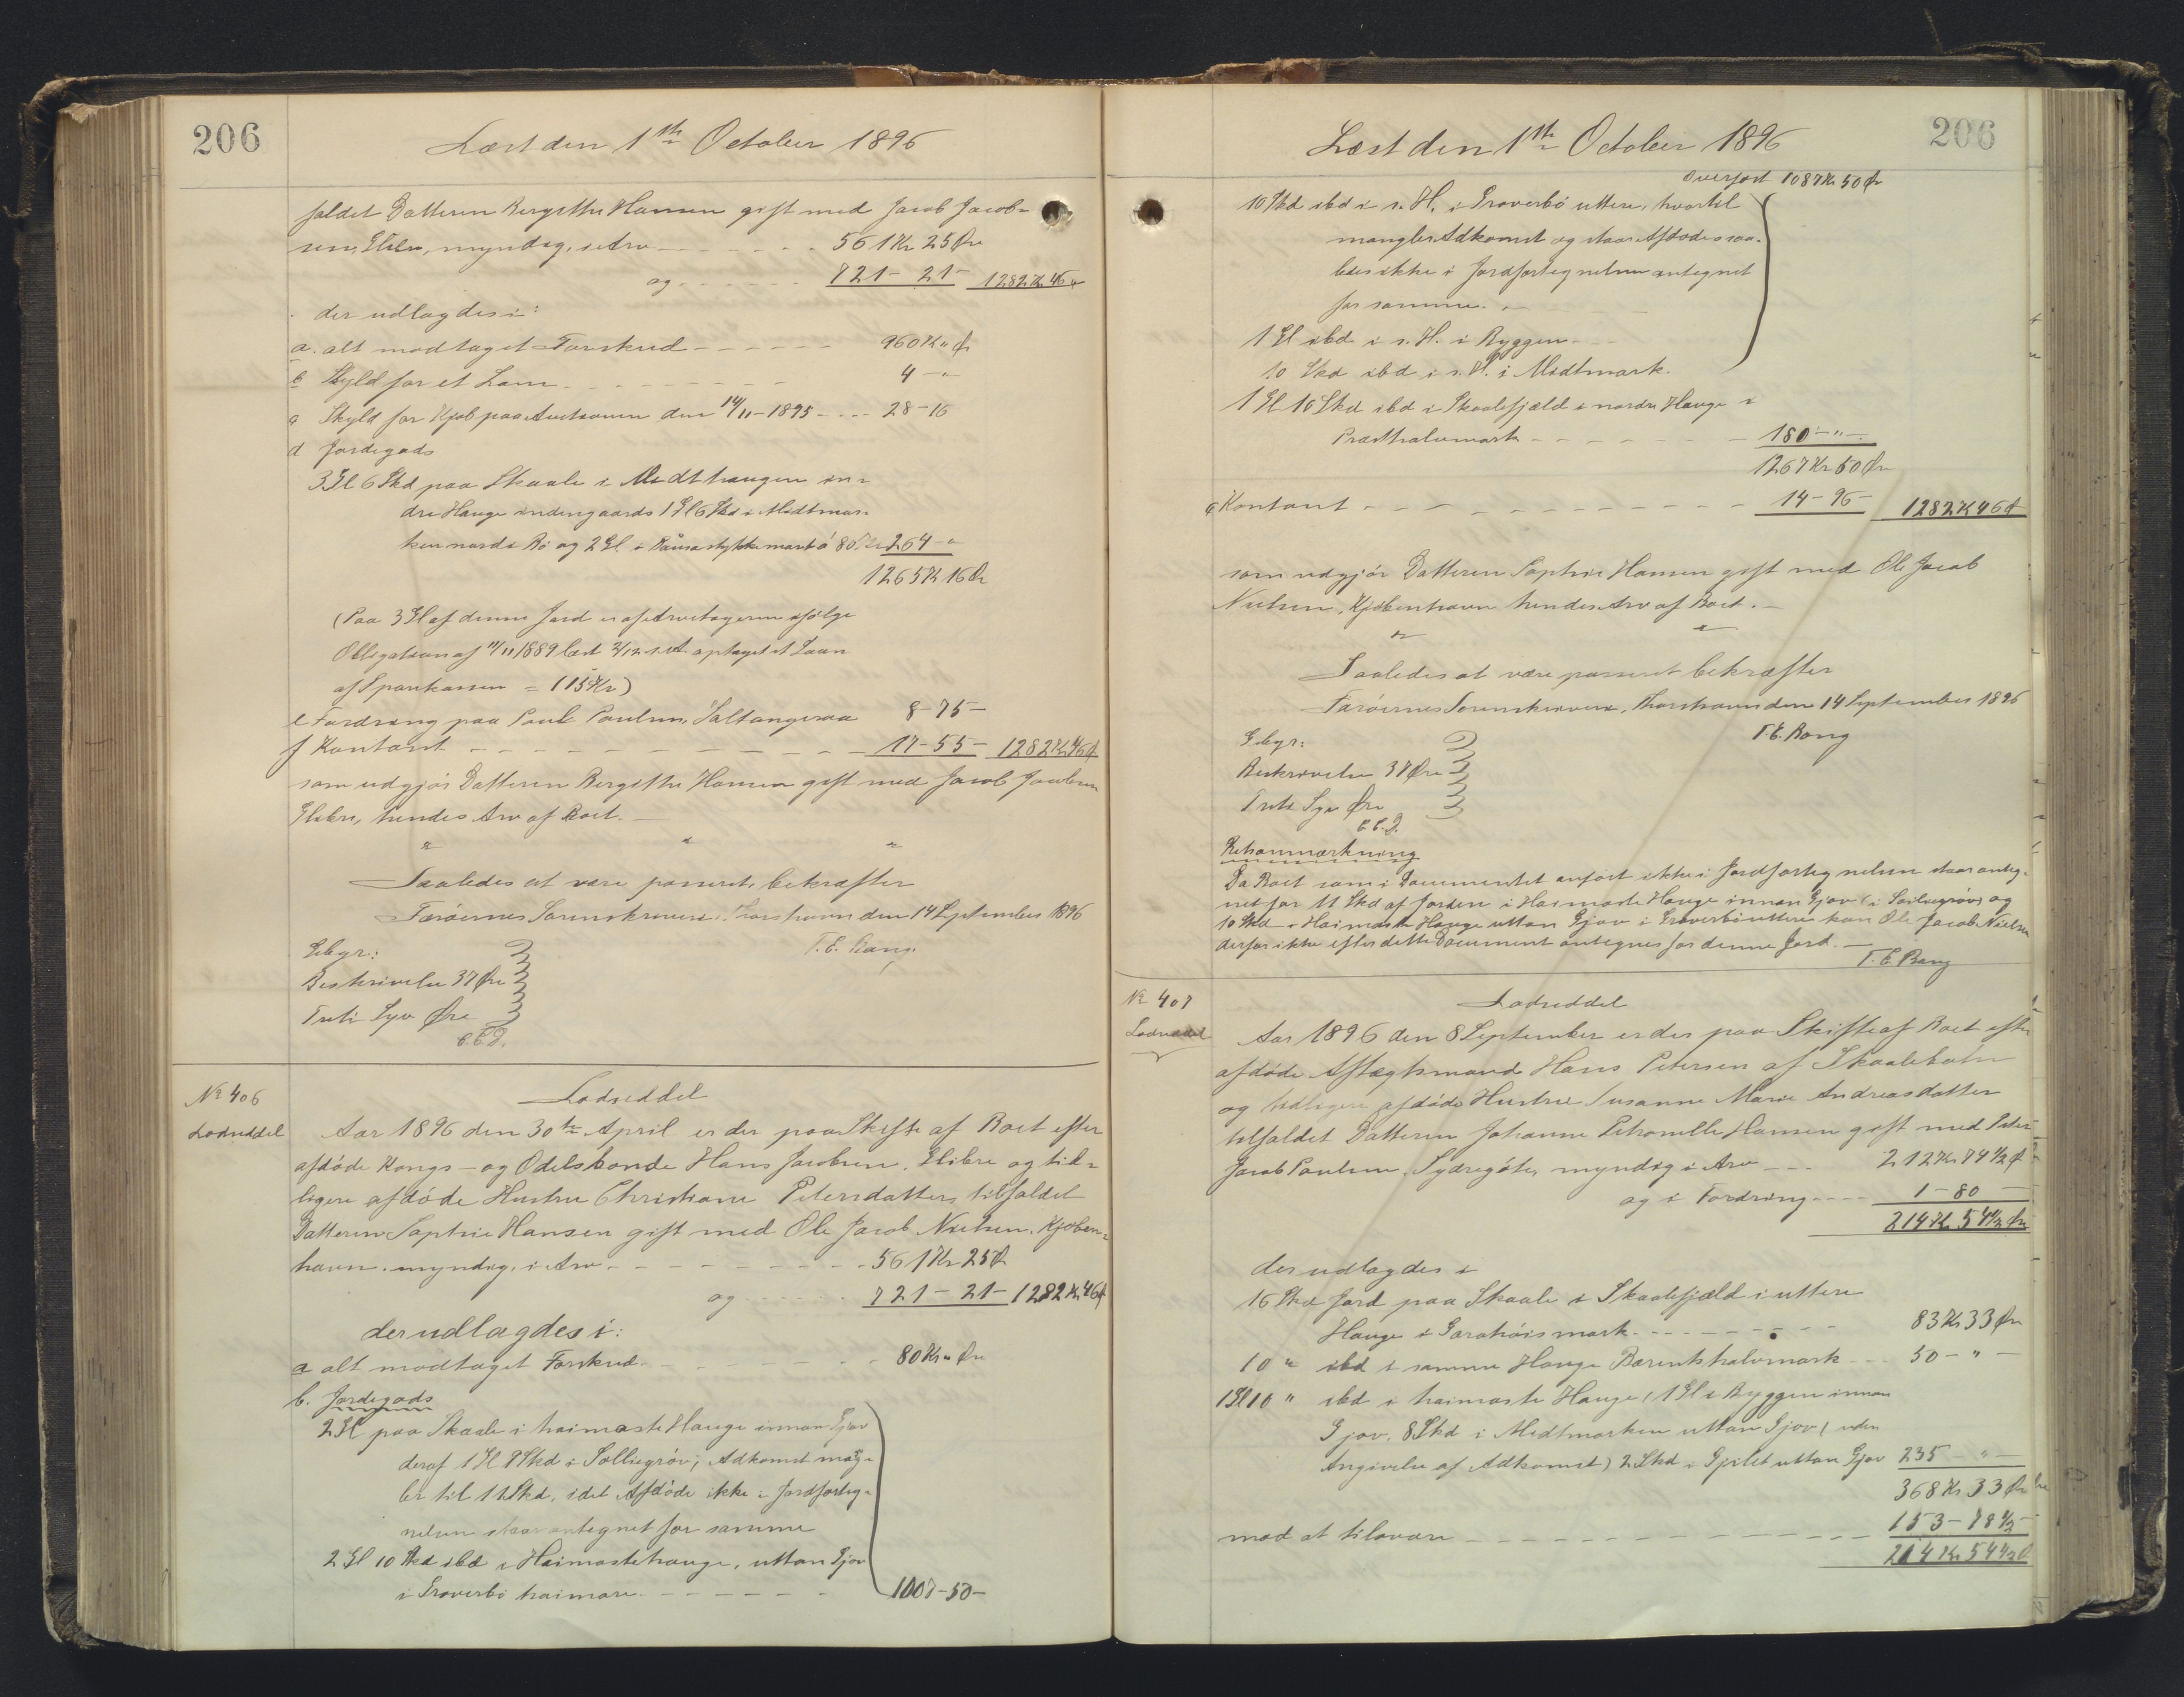 206
Læst den 1ste October 1896
faldet Datteren Bergithe Hansen gift med Jacob Jacob-
sen, Glibre, myndig, i Arv 561 Kr 25 Øre
og 721 - 21 - 1282 Kr 46 Ø
der udlagdes i:
a. alt modtaget Forskud 960 Kr " Ø
b Skyld for et Lam 4 - "
c Skyld for Kjøb paa Auctionen den 14/11 - 1895 28 - 16
d Jordegods
3 Gl 6 Skd paa Skaale i Midthaugen in-
dre Hauge indengaards 1 Gl 6 Skd i Midtmar-
ken nordi Bø og 2 Gl i stykkemark á 80 Kr 264 - "
1265 Kr 16 Ør
(Paa 3 Gl af denne Jord er af Arvetageren ifølge
Obligation af 11/11 1889 læst 2/12 s. A. optaget et Laan
af Sparekassen = 115 Kr)
e Fordring paa Poul Poulsen, Saltangeraa 8 - 75 -
f Kontant 17 - 55 - 1282 Kr 46 Ø
som udgjør Datteren Bergithe Hansen gift med Jacob Jacobsen
Glibre, hendes Arv af Boet. -
" " "
Saaledes at være passeret, bekræfter
Færøernes Sorenskriveri, Thorshavn den 14 September 1896
Gebyr: T. E. Bang.
Beskrivelse 37 Øre
Treti Syv Øre
E. E. D.
No 406
Lodseddel
Lodseddel
Aar 1896 den 30te April er der paa Skifte af Boet efter
afdøde Kongs- og Odelsbonde Hans Jacobsen, Glibre og tid-
ligere afdøde Hustru Christiane Petersdatter, tilfaldet
Datteren Sophie Hansen gift med Ole Jacob Nielsen, Kjøben-
havn, myndig, i Arv 561 Kr 25 Ø
og 721 - 21 - 1282 Kr 46 Ø
der udlagdes i:
a alt modtaget Forskud 80 Kr " Øre
b. Jordegods
2 Gl paa Skaale i haimaste Hauge innan Gjov
deraf 1 Gl 9 Skd i Sølliegróv, Adkomst mang-
ler til 11 Skd, idet Afdøde ikke i Jordforteg-
nelsen staar antegnet for samme
2 Gl 10 Skd ibd i Haimastehauge, uttan Gjov
i Groverbö haimare 1007 - 50 -
206
Læst den 1ste October 1896
Overført 1087 Kr 50 Ør
10 Skd ibd i s. H. i Groverbö uttere, hvortil
mangler Adkomst og staar Afdøde saa-
ledes ikke i Jordfortegnelsen antegnet
for samme.
1 Gl ibd i s. H. i Byggen
10 Skd ibd i s. H. i Midtmark.
1 Gl 10 Skd ibd i Skaalefjæld i nordre Hauge i
Præsthalvmark 180 - " -
1267 Kr 50 Ør
c Kontant 14 - 96 - 1282 Kr 46 Ø
som udgjør Datteren Sophie Hansen gift med Ole Jacob
Nielsen, Kjøbenhavn hendes Arv af Boet. -
" "
Saaledes at være passeret bekræfter
Færøernes Sorenskriveri, Thorshavn den 14 September 1896
Gebyr: T. E. Bang
Beskrivelse 37 Øre
Treti Syv Øre
E. E. D.
Retsanmærkning
Da Boet som i Documentet anført ikke i Jordfortegnelsen staar anteg-
net for 11 Skd af Jorden i Haimaste Hauge innan Gjov (i Sølliegróv) og
10 Skd i Haimaste Hauge uttan Gjov i Groverbö uttere kan Ole Jacob Nielsen
derfor ikke efter dette Document antegnes for denne Jord. -
T. E. Bang
No 407
Lodseddel
Lodseddel
Aar 1896 den 8 September er der paa Skifte af Boet efter
afdøde Aftægtsmand Hans Petersen af Skaalebotn
og tidligere afdøde Hustru Susanne Marie Andreasdatter
tilfaldet Datteren Johanne Petronelle Hansen gift med Peter
Jacob Poulsen, Sydregøte, myndig i Arv 212 Kr 74 1/2 Ø
og i Fordring 1 - 80 -
214 Kr 54 1/2 Ør
der udlagdes i
16 Skd Jord paa Skaale i Skaalefjæld i uttere
Hauge i mark 83 Kr 33 Ør
10 " ibd i samme Hauge Barentshalvmark 50 - " -
1 Gl 10 " ibd i haimaste Hauge (1 Gl i Byggen innan
Gjov, 8 Skd i Midtmarken uttan Gjov (uden
Angivelse af Adkomst) 2 Skd i Gjilet uttan Gjov 235 - " -
368 Kr 33 Ør
mod at tilsvare 153 - 78 1/2 -
214 Kr 54 1/2 Ø